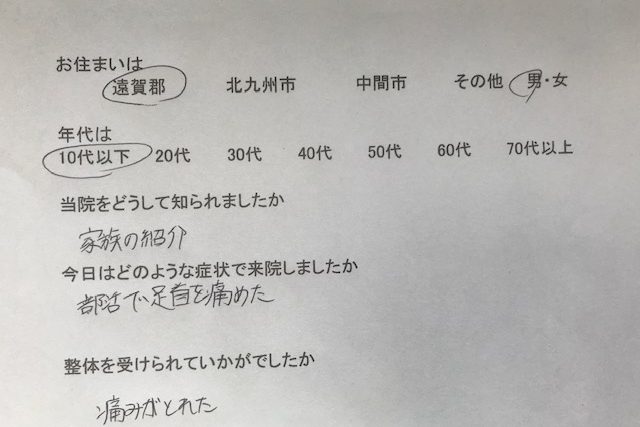 お住まいは
遠賀郡 北九州市 中間市 その他 男・女
年代は
10代以下 20代 30代 40代 50代 60代 70代以上
当院をどうして知られましたか
家族の紹介
今日はどのような症状で来院しましたか
部活で足首を痛めた
整体を受けられていかがでしたか
痛みがとれた